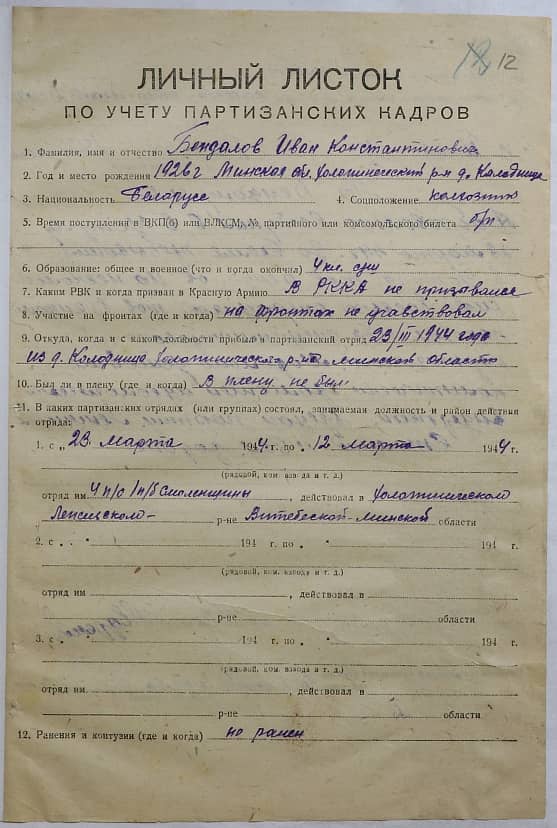 12
ЛИЧНЫЙ ЛИСТОК
ПО УЧЕТУ ПАРТИЗАНСКИХ КАДРОВ
1. Фамилия, имя и отчество Бендалов Иван Константинович
2. Год и место рождения 1926 г Минская обл. Холопинический р-н д. Колодница
3. Национальность Беларусс 4. Соцположение колхозник
5. Время поступления в ВКП(б) или ВЛКСМ, № партийного или комсомольского билета б/п
6. Образование: общее и военное (что и когда окончил) 4 кл.
7. Каким РВК и когда призван в Красную Армию В РККА не призывался
8. Участие на фронтах (где и когда) на фронтах не учавствовал
9. Откуда, когда и с какой должности прибыл в партизанский отряд 23/III 1944 года
из д. Колодница Холопинического р-на Минской область
10. Был ли в плену (где и когда) В плену не был
11. В каких партизанских отрядах (или группах) состоял, занимаемая должность и район действия
отряда:
1. с „ 23 марта 1944 г. по „ 12 марта 1944 г.
(рядовой, ком. взвода и т. д.)
отряд им. 4 п/о 1 п/б Смоленщины , действовал в Холопинического
Лепельского- р-не Витебеской-Минской области
2. с „ 194 г. по „ 194 г.
(рядовой, ком. взвода и т. д.)
отряд им , действовал в
р-не области
3. с „ 194 г. по „ 194 г.
(рядовой, ком. взвода и т. д.)
отряд им. , действовал в
р-не области
12. Ранения и контузии (где и когда) не ранен